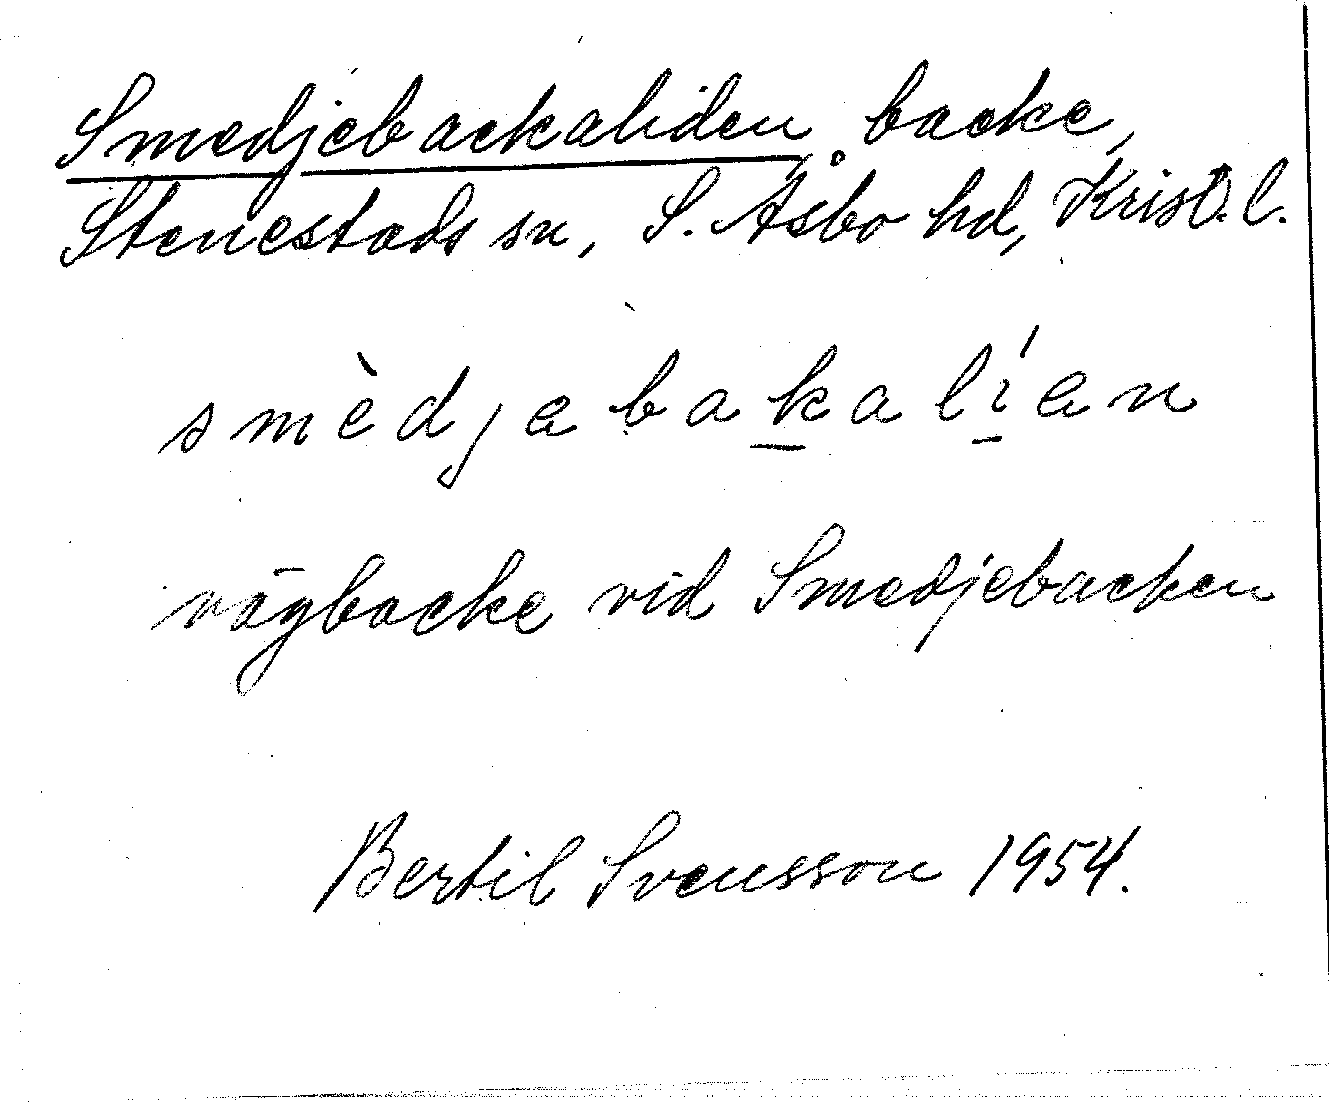 Smedjebackaliden, backe,
Stenestads sn, S. Åsbo hd, Krist. l.
smèdjabak̲alí̲an
vägbacke vid Smedjebacken
Bertil Svensson 1954.